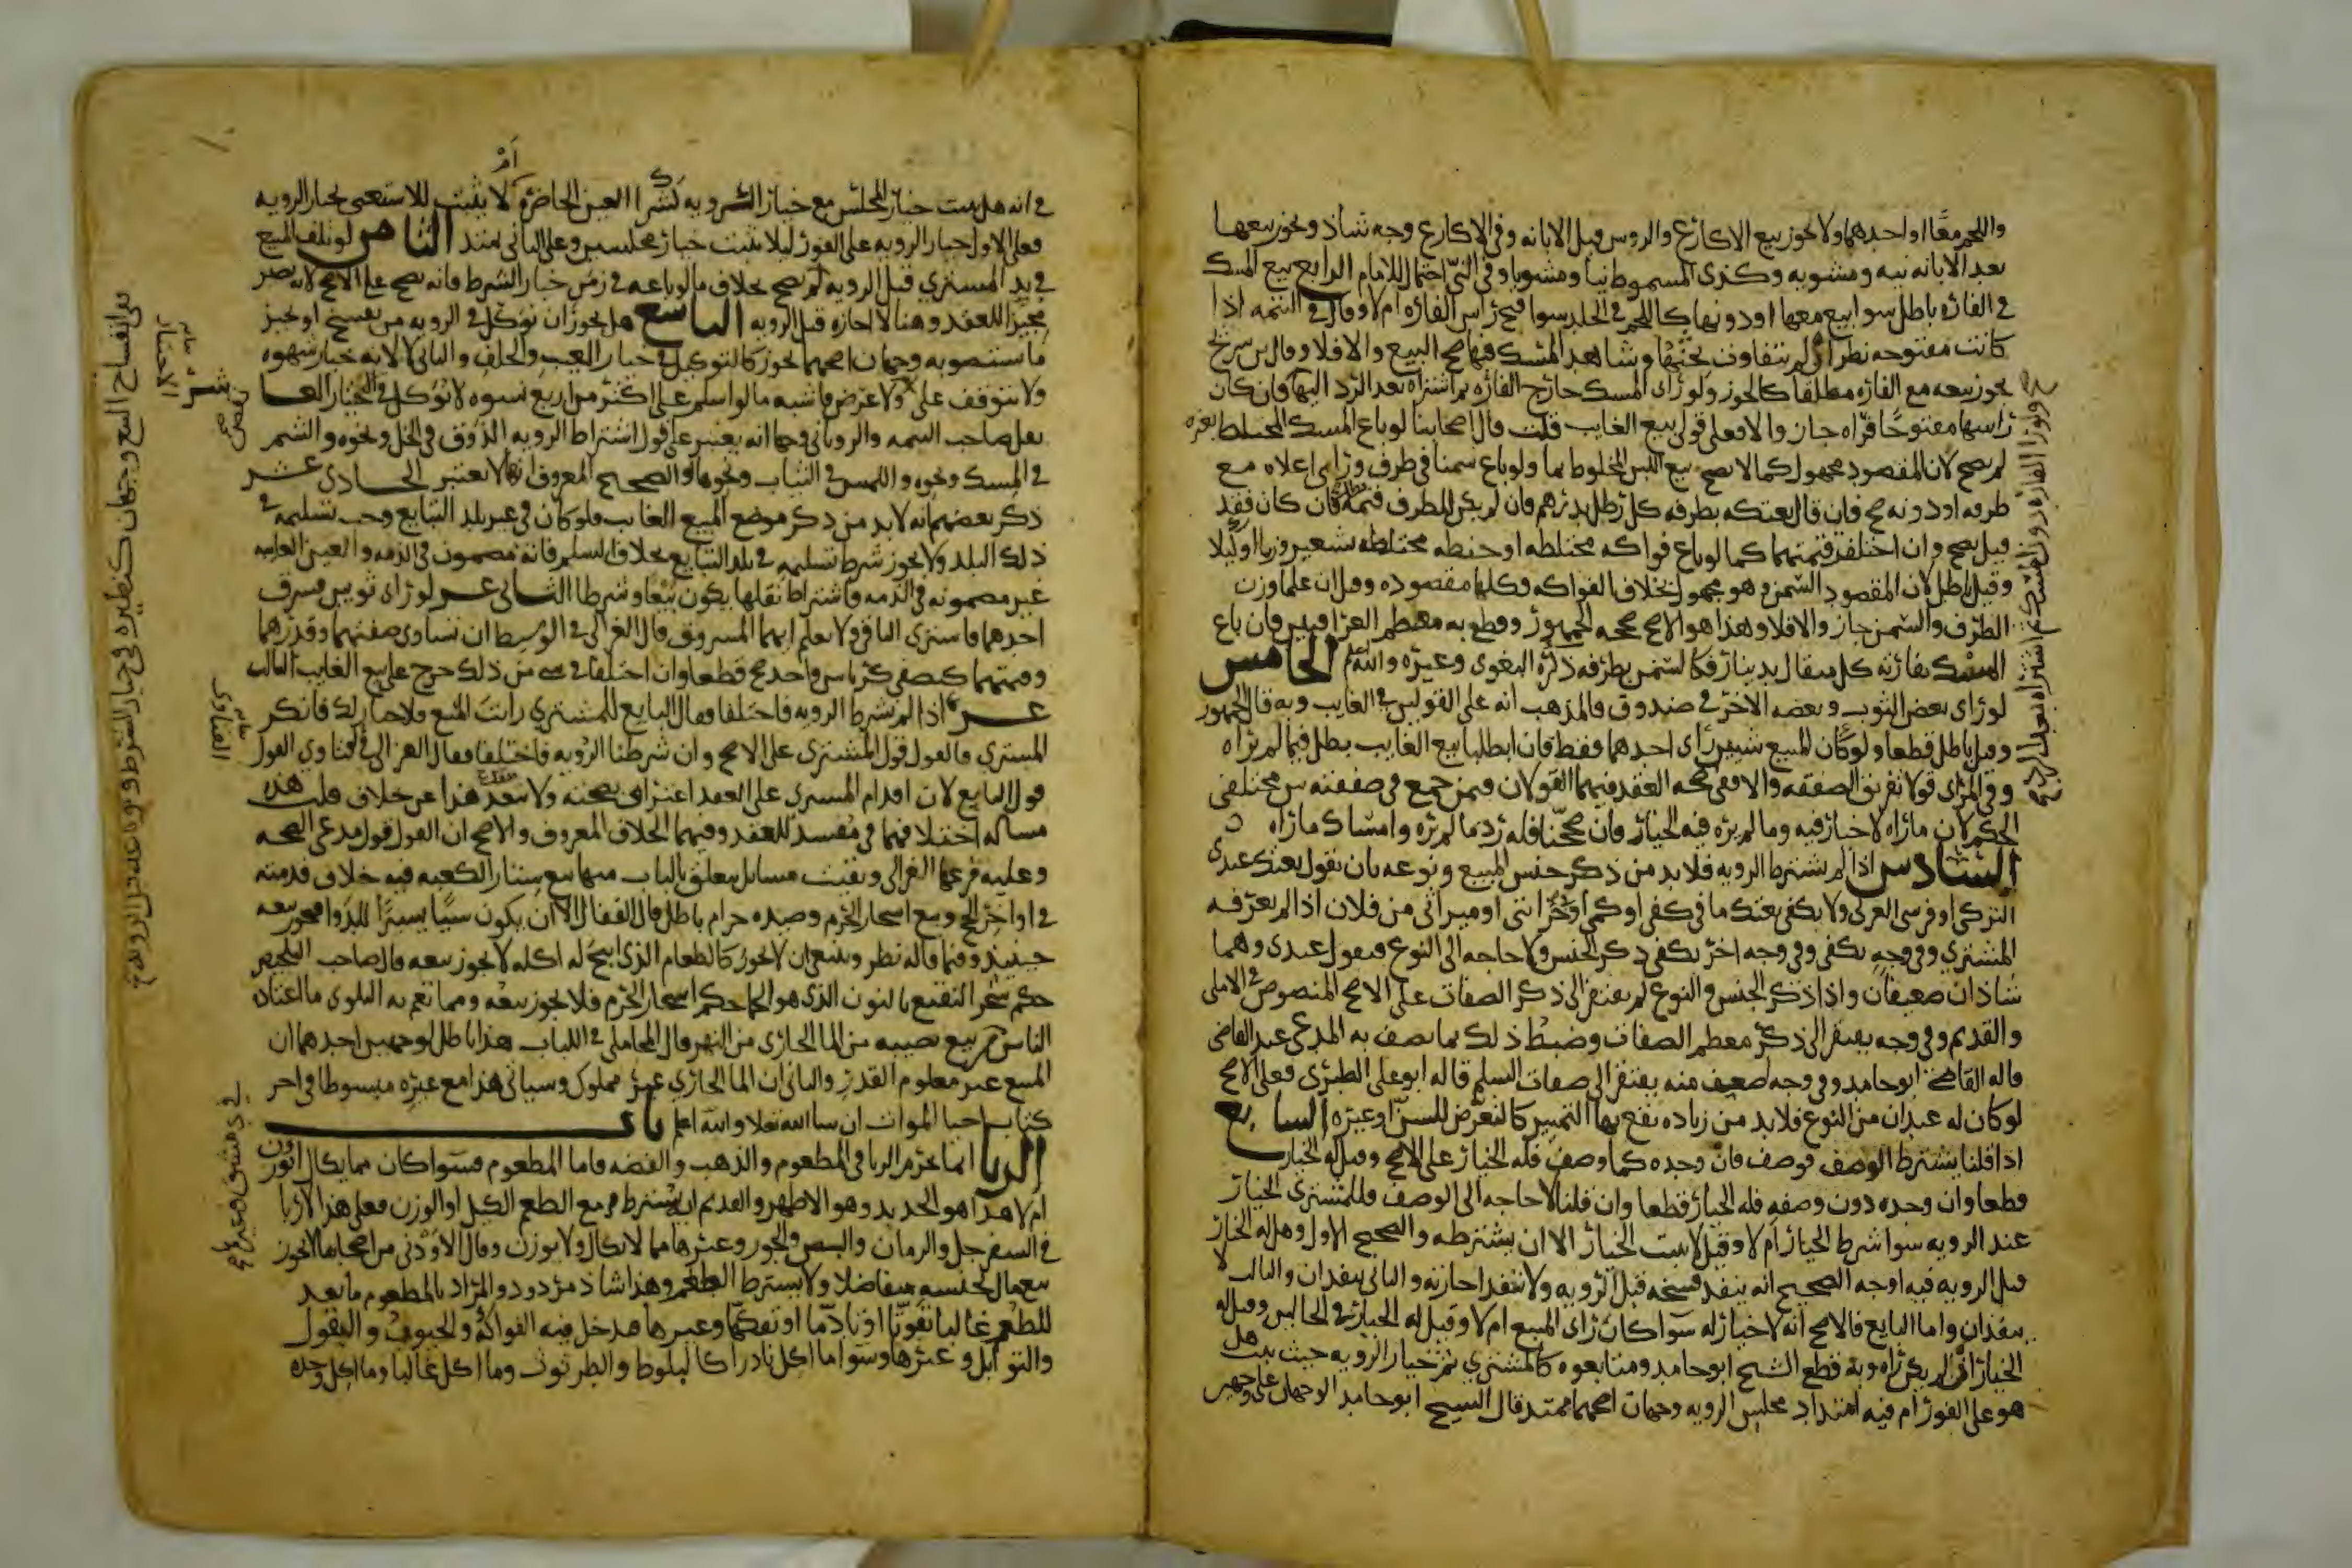 واللحم معًا او احدهما ولا يجوز بيع الاكارع والروس قبل الابانه وفي الاكارع وجه شاذ ويجوز بيعها
بعد الابانه نيه ومشويه وكذى المسموط نيا ومشويا وفي النيّ احتمال للامام الرابع بيع المسك
في الفاره باطل سوا بيع معها او دونها كاللحم في الجلد سوا فتح راس الفاره ام لا وقال في التتمه اذا
كانت مفتوحه نظر ان لم يتفاوت ثخنها وشاهد المسك فيها صح البيع والا فلا وقال بن سريج
يجوز بيعه مع الفاره مطلقا كالجوز ولو راى المسك خارج الفاره ثم اشتراه بعد الرد اليها فان كان
راسها مفتوحًا فراه جاز والا فعلى قولى بيع الغايب قلت قال اصحابنا لو باع المسك المختلط بغيره
لم يصح لان المقصود مجهول كما لا يصح بيع اللبن المخلوط بما ولو باع سمنا في ظرف وراى اعلاه مع
ظرفه او دونه صح فان قال بعتكه بظرفه كل رطل بدرهم فان لم يكن للظرف قيمة فان كان فقد
قيل يصح وان اختلفت قيمتهما كما لو باع فواكه مختلطه او حنطه مختلطه بشعير وزنا او كيلا
وقيل باطل لان المقصود السمن وهو مجهول بخلاف الفواكه فكلها مقصوده وقيل ان علما وزن
الظرف والسمن جاز والا فلا وهذا هو الاصح صححه الجمهور وقطع به معظم العراقيين فان باع
المسك بفارته كل مثقال بدينار فكالسمن بظرفه ذكره البغوي وغيره والله اعلم الخامس
لو راى بعض الثوب وبعضه الاخر في صندوق فالمذهب انه على القولين في الغايب وبه قال الجمهور
وقيل باطل قطعا ولو كان المبيع شيين راى احدهما فقط فان ابطلنا بيع الغايب بطل فيما لم يراه
وفي المراى قولا تفريق الصفقه والا ففى صحه العقد فيهما القولان فيمن جمع في صفقته بين مختلفى
الحكم لان ماراه لا خيار فيه وما لم يره فيه الخيار فان صححنا فله رد ما لم يره وامساك ماراه
السادس اذا لم يشترط الرويه فلا بد من ذكر جنس المبيع ونوعه بان يقول بعتك عبدى
التركى او فرسى العربى ولا يكفى بعتك ما في كفى او كمى او خزانتى او ميراثى من فلان اذا لم يعرفه
المشتري وفي وجه يكفى وفي وجه اخر يكفى ذكر الجنس ولا حاجه الى النوع فيقول عبدى وهما
شاذان ضعيفان واذا ذكر الجنس والنوع لم يفتقر الى ذكر الصفات على الاصح المنصوص في الاملى
والقديم وفي وجه يفتقر الى ذكر معظم الصفات وضبط ذلك بما يصف به المدعى عند القاضى
قاله القاضي ابو حامد وفي وجه اضعيف منه يفتقر الى صفات السلم قاله ابو على الطبرى فعلى الاصح
لو كان له عبدان من النوع فلا بد من زياده يقع بها التمييز كالتعرض للسن او غيره السابع
اذا قلنا يشترط الوصف فوصف فان وجده كما وصف فله الخيار على الاصح وقيل لا خيار
قطعا وان وجده دون وصفه فله الخيار قطعا وان قلنا لا حاجه الى الوصف فللمشترى الخيار
عند الرويه سوا شرط الخيار ام لا وقيل لا يثبت الخيار الا ان يشترطه والصحيح الاول وهل له الخيار
قبل الرويه فيه اوجه الصحيح انه ينفذ فسخه قبل الرويه ولا تنفذ اجازته والثاني ينفذان والثالث لا
ينفذان واما البايع فالاصح انه لا خيار له سوا كان راى المبيع ام لا وقيل له الخيار في الحالين وقيل له
الخيار ان لم يكن راه وبه قطع الشيخ ابو حامد ومتابعوه كالمشتري ثم خيار الرويه حيث يثبت هل
هو على الفور ام فيه امتداد مجلس الرويه وجهان اصحهما يمتد قال الشيخ ابو حامد الوجهان على وجهين
في انه هل يثبت خيار المجلس مع خيار الرويه كشرا العين الحاضره ام لا يثبت للاستغنى بخيار الرويه
فعلى الاول خيار الرويه على الفور ليلا يثبت خيار مجلسين وعلى الثاني يمتد الثامن لو تلف المبيع
في يد المشتري قبل الرويه لم يصح بخلاف ما لو باعه في زمن خيار الشرط فانه يصح على الاصح لانه يصير
مجيزا للعقد وهنا لا اجازه قبل الرويه التاسع هل يجوز ان يوكل في الرويه من يفسخ او يجيز
ما يستصوبه وجهان اصحهما يجوز كالتوكيل في خيار العيب والخلف والثاني لا لانه خيار شهوه
ولا يتوقف على ولا غرض فاشبه ما لو اسلم على اكثر من اربع نسوه لا يوكل في الاختيار العاشر
نقل صاحب التتمه والروياني وجها انه يعتبر على قول اشتراط الرويه الذوق في الخل ونحوه والشم
في المسك ونحوه واللمس في الثياب ونحوها والصحيح المعروف انها لا تعتبر الحادى عشر
ذكر بعضهم انه لا بد من ذكر موضع المبيع الغايب فلو كان في غير بلد التبايع وجب تسليمه في
ذلك البلد ولا يجوز شرط تسليمه في بلد التبايع بخلاف السلم فانه مضمون في الذمه والعين الغايبه
غير مضمونه في الذمه فاشتراط نقلها يكون بيعا وشرطا الثانى عشر لو راى ثوبين فسرق
احدهما فاشترى الباقى ولا يعلم ايهما المسروق قال الغزالى في الوسيط ان تساوى صفتهما وقدرهما
وقيمتهما كنصفى كرباس واحد صح قطعا وان اختلفا في شي من ذلك خرج على بيع الغايب الثالث
عشر اذا لم نشرط الرويه فاختلفا فقال البايع للمشتري رايت المبيع فلا خيار لك فانكر
المشتري فالقول قول المشترى على الاصح وان شرطنا الرويه فاختلفا فقال الغزالى في الفتاوى القول
قول البايع لان اقدام المشترى على العقد اعتراف بصحته ولا ينفك هذا عن خلاف قلت هذه
مساله اختلافهما في مفسد للعقد وفيها الخلاف المعروف والاصح ان القول قول مدعى الصحه
وعليه فرعها الغزالى وبقيت مسايل يتعلق بالباب منها بيع ستار الكعبه فيه خلاف قدمته
في اواخر الحج وبيع اشجار الحرم وصيده حرام باطل قال القفال الا ان يكون شيا يسيرًا للدوا فيجوز بيعه
حينيذ وفيما قاله نظر وينبغى ان لا يجوز كالطعام الذى ابيح له اكله لا يجوز بيعه قال صاحب التلخيص
حكم شجر النقيع بالنون الذى هو الحما حكم اشجار الحرم فلا يجوز بيعه ومما تعم به البلوى ما اعتاده
الناس من بيع نصيبه من الما الجارى من النهر قال المحاملى في اللباب هذا باطل لوجهين احدهما ان
المبيع غير معلوم القدر والثانى ان الما الجاري غير مملوك وسياتى هذا مع غيره مبسوطا في اخر
كتاب احيا الموات ان شا الله تعلا والله اعلم باب
الربا انما يحرم الربا في المطعوم والذهب والفضه فاما المطعوم فسوا كان مما يكال او يوزن
ام لا هذا هو الجديد وهو الاظهر والقديم انه يشترط مع الطعم الكيل او الوزن فعلى هذا لا ربا
في السفرجل والرمان والبيض والجوز وغيرها مما لا يكال ولا يوزن وقال الاودنى من اصحابنا لا يجوز
بيع مال بجنسه متفاضلا ولا يشترط الطعم وهذا شاذ مردود والمراد بالمطعوم ما يعد
للطعم غالبا تقوتًا او تادمًا او تفكهًا وغيرها فدخل فيه الفواكه والحبوب والبقول
والتوابل وغيرها وسوا ما اكل نادرا كالبلوط والطرثوث وما اكل غالبا وما اكل وحده